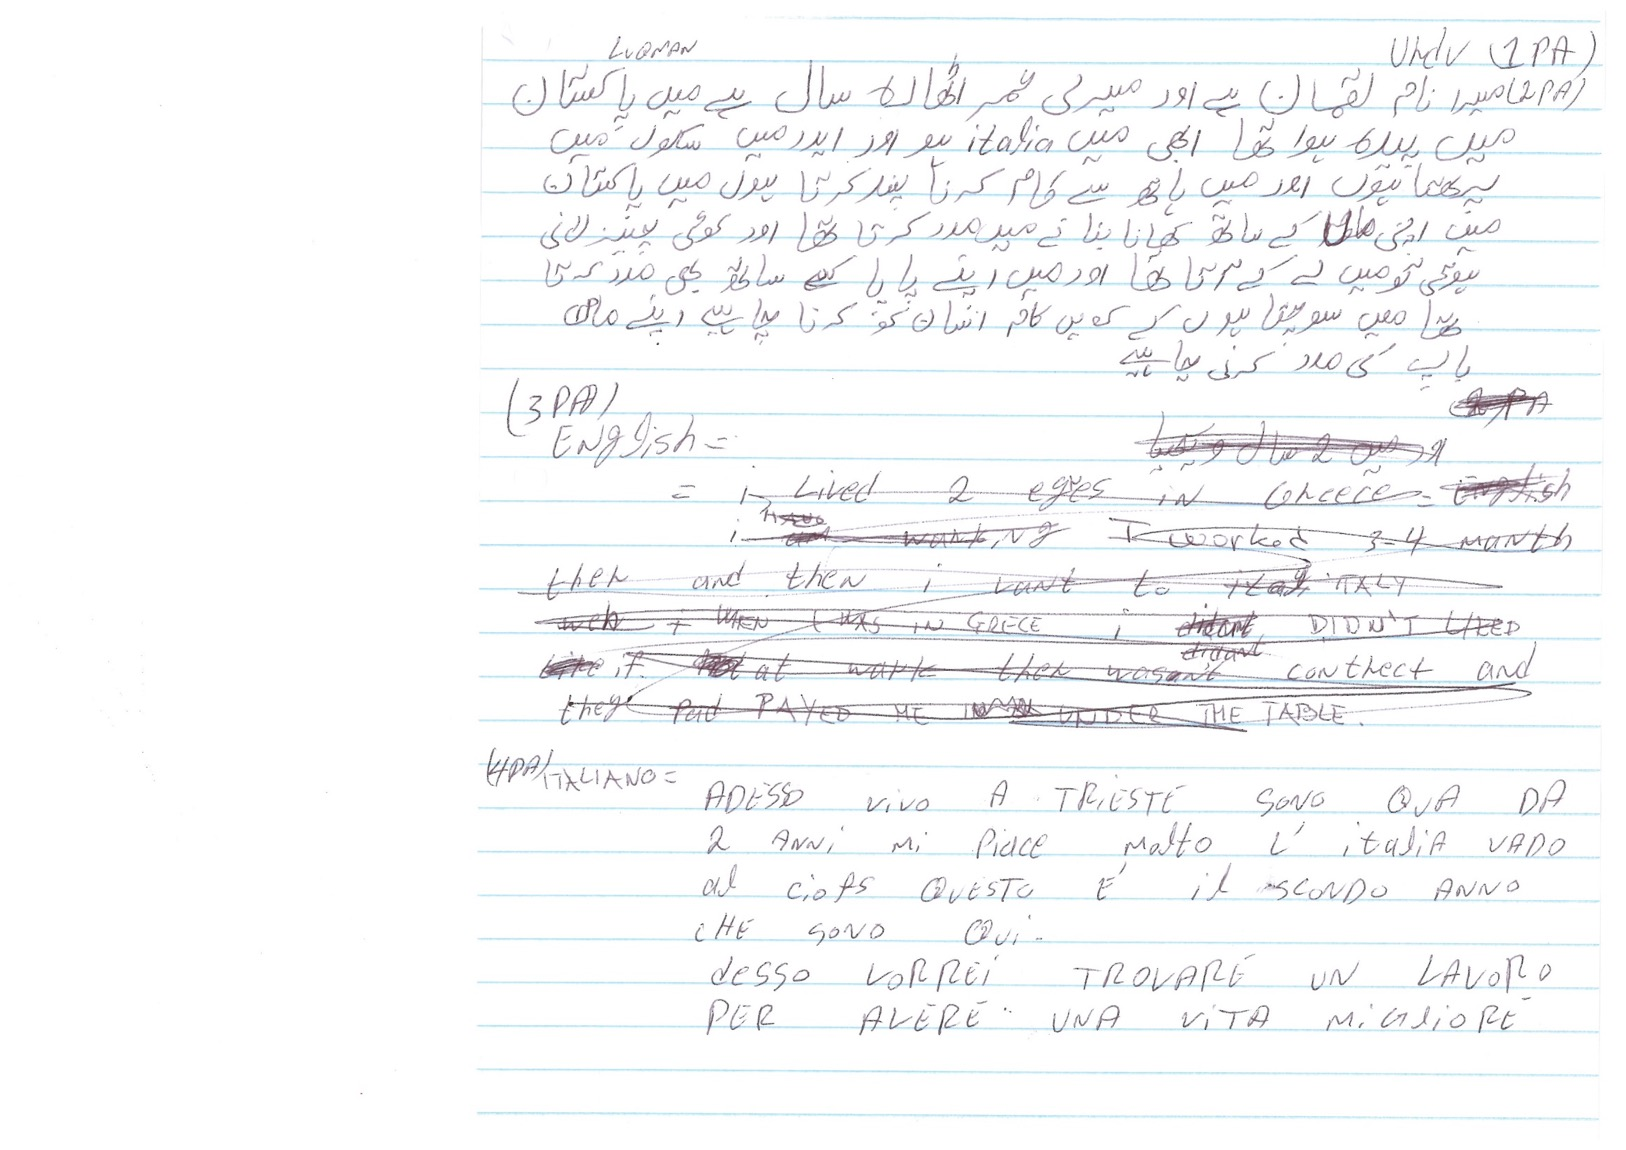 LUQMAN
Urdu (1PA)
(2PA) میرا نام لقمان ہے اور میری عمر اٹھارہ سال ہے میں پاکستان
میں پیدہ ہوا تھا ابھی میں italia ہو اور ایدر میں سکول میں
پرھتا ہوں اور میں ہاتھ سے کام کرنا پسند کرتا ہوں میں پاکستان
میں اپنی ماں کے ساتھ کھانا بنانے میں مدد کرتا تھا اور کوئی چیز لانی
ہوتی تو میں لے کے آتا تھا اور میں اپنے پاپا کے ساتھ بھی مدد کرتا
تھا میں سوچتا ہوں کے کام انسان کو کرنا چاہیے اپنے ماں
باپ کی مدد کرنی چاہیے
2 PA
(3PA)
ENglish =
اور میں 2 سال
= i Lived 2 eyes in Greece = English
Have
i am working I worked 3-4 manth
ther and then i vant to italy ITALY
weh I WHEN I WAS IN GRECE i didant DIDN'T LIKED
didant
like it at wark ther wasant contrect and
they Pad PAYED ME IN UNDER THE TABLE.
(4PA) ITALIANO =
ADESSO vivo A TRiESTE SONO QUA DA
2 ANNi Mi Piace malto L' italiA VADO
al ciofs QUESTO E' il SCONDO ANNO
CHE SONO Qui.
desso VORREi TROVARE UN LAVORO
PER AVERE UNA ViTA MiGliORE